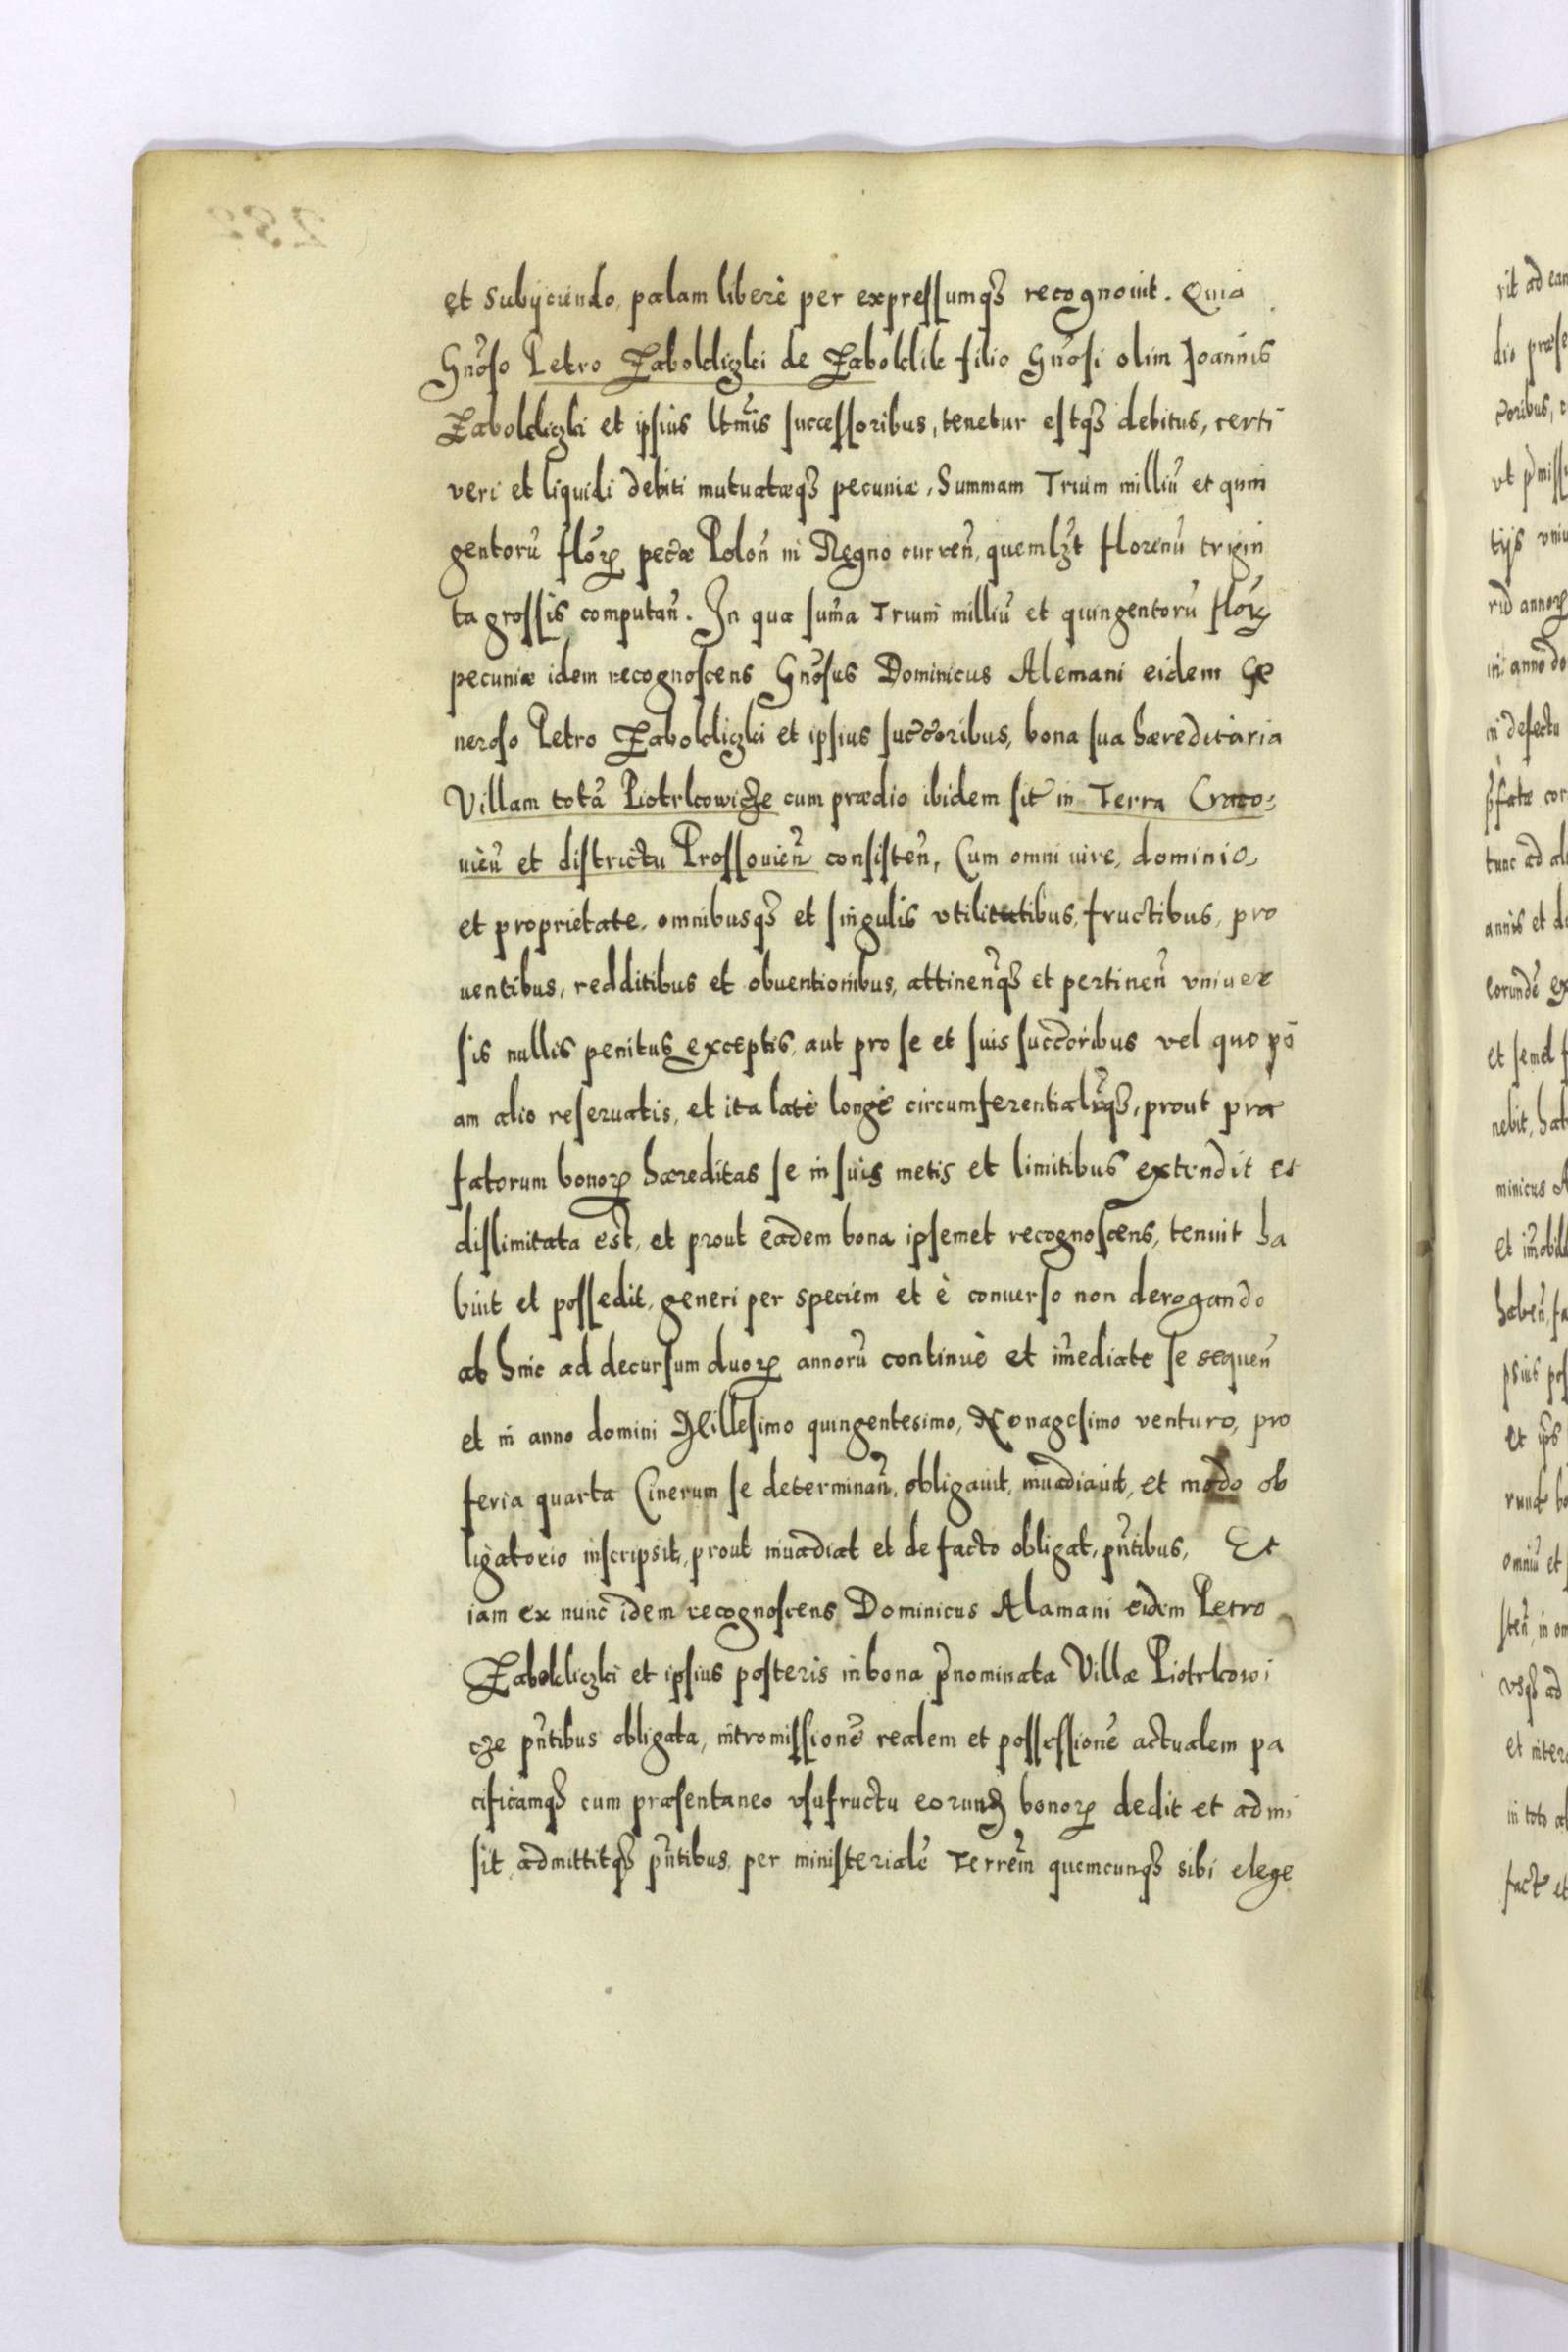 et subijciendo, palam liberè per expressumqꝫ recognouit. Quia
Gnõso Petro Zabokliczki de Zaboklik filio Gnõsi olim Joannis
Zaboklicꝫki et ipsius ltm̃is successoribus, tenetur estqꝫ debitus, certi
veri et liquidi debiti mutuatæqꝫ pecuniæ, Summam Trium milliũ et quin
gentorũ florꝝ pecũæ Poloñ in Regno curreñ, quemlꝫt florenũ trigin
ta grossis computañ. In qua sum̃a Trium milliũ et quingentorũ florꝝ
pecuniæ idem recognoscens Gnõsus Dominicus Alemani eidem Ge
neroso Petro Zaboklicꝫki et ipsius succ̃oribus, bona sua hæreditaria
Villam totã Piotrkowicꝫe cum prædio ibidem sit̃ in Terra Craco:
vieñ et districtu Prossouieñ consisteñ, Cum omni iure, dominio
et proprietate, omnibusqꝫ et singulis vtilitatibus, fructibus, pro
uentibus, redditibus et obuentionibus, attineñqꝫ et pertineñ vniuer
sis nullis penitus exceptis, aut pro se et suis succ̃oribus vel quopõ
am alio reseruatis, et ita latè longè circumferentialr̃qꝫ, prout præ
fatorum bonorꝝ hæreditas se in suis metis et limitibus extendit et
dislimitata est, et prout eadem bona ipsemet recognoscens, tenuit ha
buit et possedit, generi per speciem et è conuerso non derogando
ab hinc ad decursum duorꝝ annorũ continuè et im̃ediate se sequeñ
et in anno domini Millesimo quingentesimo, Nonagesimo venturo, pro
feria quarta Cinerum se determinañ, obligauit, inuadiauit, et modo ob
ligatorio inscripsit, prout inuadiat et de facto obligat, pñtibus, Et
iam ex nunc idem recognoscens Dominicus Alamani eidem Petro
Zaboklicꝫki et ipsius posteris in bona p̃nominata Villæ Piotrkowi
cꝫe pñtibus obligata, intromissionẽ realem et possessionẽ actualem pa
cificamqꝫ cum præsentaneo vsufructu eorundꝫ bonorꝝ dedit et admi
sit, admittitqꝫ pñtibus, per ministerialẽ Terrem̃ quemcunqꝫ sibi elege